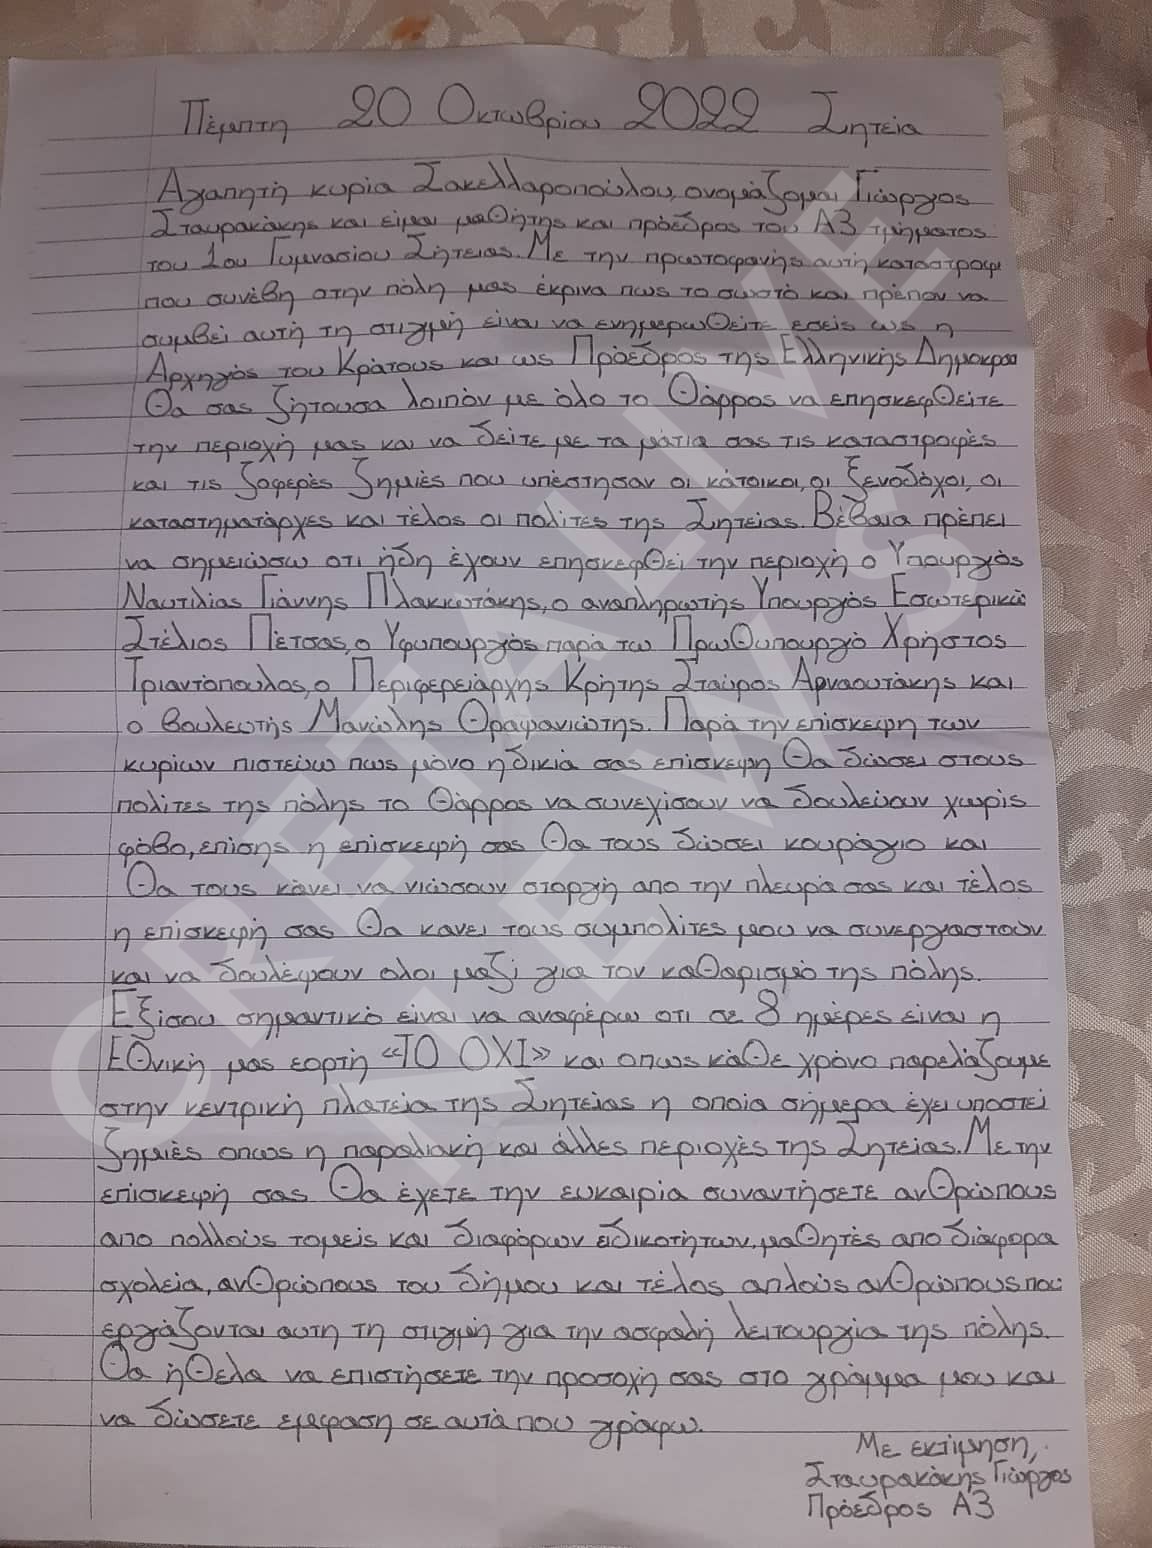 Πέμπτη 20 Οκτωβρίου 2022 Σητεία
Αγαπητή κυρία Σακελλαροπούλου, ονομάζομαι Γιώργος
Σταυρακάκης και είμαι μαθητης και πρόεδρος του Α3 τμήματος
του 1ου Γυμνασίου Σητείας. Με την πρωτοφανής αυτή καταστροφή
που συνέβη στην πόλη μας έκρινα πως το σωστό και πρέπον να
συμβεί αυτή τη στιγμή είναι να ενημερωθείτε εσείς ως η
Αρχηγός του Κράτους και ως Πρόεδρος της Ελληνικής Δημοκρα
Θα σας ζήτουσα λοιπόν με όλο το Θάρρος να επησκεφθείτε
την περιοχή μας και να δείτε με τα μάτια σας τις καταστροφές
και τις ζοφερές ζημιές που υπέστησαν οι κάτοικοι, οι ξενοδόχοι, οι
καταστηματάρχες και τέλος οι πολίτες της Σητείας. Βέβαια πρέπει
να σημειώσω οτι ήδη έχουν επησκεφθεί την περιοχή ο Υπουργός
Ναυτιλίας Γιάννης Πλακιωτάκης, ο αναπληρωτής Υπουργός Εσωτερικώ
Στέλιος Πέτσας, ο Υφυπουργός παρά τω Πρωθυπουργό Χρήστος
Τριαντόπουλος, ο Περιφερειάρχης Κρήτης Σταύρος Αρναουτάκης και
ο βουλευτής Μανώλης Θραψανιώτης. Παρά την επίσκεψη των
κυρίων πιστεύω πως μόνο η δικιά σας επίσκεψη θα δώσει στους
πολίτες της πόλης το Θάρρος να συνεχίσουν να δουλεύουν χωρίς
φόβο, επίσης η επίσκεψή σας Θα τους δώσει κουράγιο και
Θα τους κάνει να νιώσουν στοργή απο την πλευρά σας και τέλος
η επίσκεψή σας Θα κανει τους συμπολίτες μου να συνεργαστούν
και να δουλέψουν ολοι μαζί για τον καθαρισμό της πόλης.
Εξίσου σημαντικό είναι να αναφέρω οτι σε 8 ημέρες είναι η
Εθνική μας εορτή «ΤΟ ΟΧΙ» και οπως κάθε χρόνο παρελάζουμε
στην κεντρική πλατεία της Σητείας η οποία σήμερα έχει υποστεί
ζημιές οπως η παραλιακή και άλλες περιοχές της Σητείας. Με την
επίσκεψή σας Θα έχετε την ευκαιρία συναντήσετε ανθρώπους
απο πολλούς τομείς και διαφόρων ειδικοτήτων, μαθητές απο διάφορα
σχολεία, ανθρώπους του δήμου και τέλος απλούς ανθρώπους που
εργάζονται αυτη τη στιγμή για την ασφαλή λειτουργία της πόλης.
Θα ήθελα να επιστήσετε την προσοχή σας στο γράμμα μου και
να δώσετε εμφαση σε αυτά που γράφω.
Με εκτίμηση,
Σταυρακάκης Γιώργος
Πρόεδρος Α3
CRETALIVE
NEWS